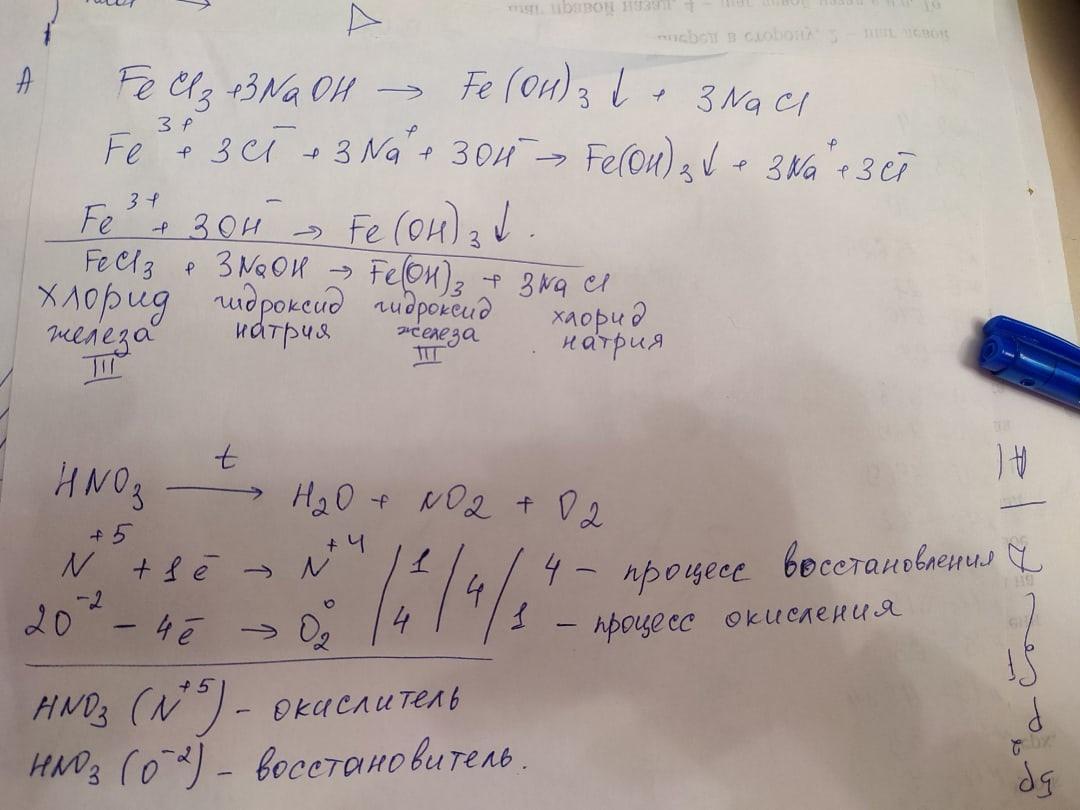 А
FeCl₃ + 3NaOH → Fe(OH)₃↓ + 3NaCl
Fe³⁺ + 3Cl⁻ + 3Na⁺ + 3OH⁻ → Fe(OH)₃↓ + 3Na⁺ + 3Cl⁻
Fe³⁺ + 3OH⁻ → Fe(OH)₃↓.
FeCl₃ + 3NaOH → Fe(OH)₃ + 3NaCl
хлорид гидроксид гидроксид хлорид
железа натрия железа натрия
III III
HNO₃ —t→ H₂O + NO₂ + O₂
N⁺⁵ + 1ē → N⁺⁴ / 1 / 4 / 4 – процесс восстановления
2O⁻² – 4ē → O₂⁰ / 4 / / 1 – процесс окисления
HNO₃ (N⁺⁵) – окислитель
HNO₃ (O⁻²) – восстановитель.